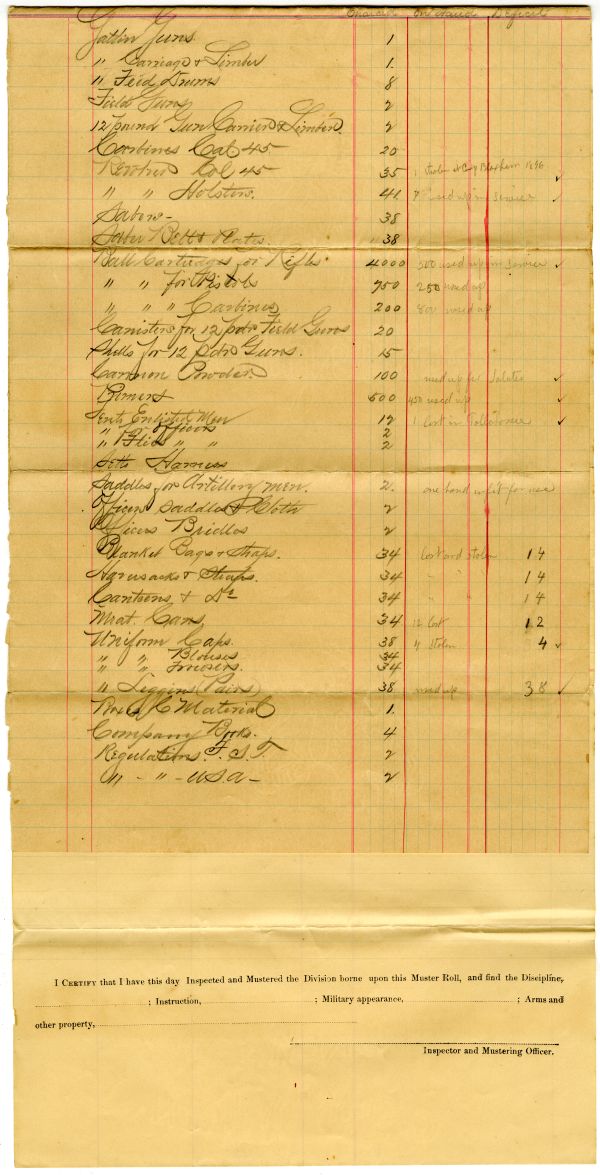 Charged On Hand Deficit
Gatlin Guns 1
" Carriage & Limber 1
" Feed Drums 8
Field Guns 2
12 pound Gun Carrier & Limber 2
Carbines Cal 45 20
Revolvers Cal 45 35 1 Stolen at 1896 ✓
" " Holsters. 41 7 used up in service ✓
Sabers - 38
Saber Belts & Plates. 38
Ball Cartridges for Rifles 4000 500 used up in service ✓
" " for Pistols 750 250 used up
" " " Carbines 200 800 used up
Canisters for 12 pdr Field Guns 20
Shells for 12 Pdr Guns. 15
Cannon Powder 100 used up for Salutes ✓
Primers 500 450 used up ✓
Tents Enlisted Men 12 1 Lost in ✓
" for Officers 2
" Flies " " 2
Setts Harness
Saddles for Artillery men. 2. one hand unfit for use
Officers Saddles & Cloth 2
Officers Bridles 2
Blanket Bags & Straps. 34 Lost and stolen 14
Haversacks & Straps. 34 " " 14
Canteens & Do 34 " " 14
Meat Cans, 34 12 Lost 12
Uniform Caps. 38 4 Stolen 4 ✓
" " Blouses 34
" " Trousers. 34
" Leggins (Pairs) 38 used up 38 ✓
Material 1.
Company Books. 4
Regulations. F. S. T. 2
" - " - U S A - 2
I CERTIFY that I have this day Inspected and Mustered the Division borne upon this Muster Roll, and find the Discipline,
; Instruction, ; Military appearance, ; Arms and
other property,
Inspector and Mustering Officer.